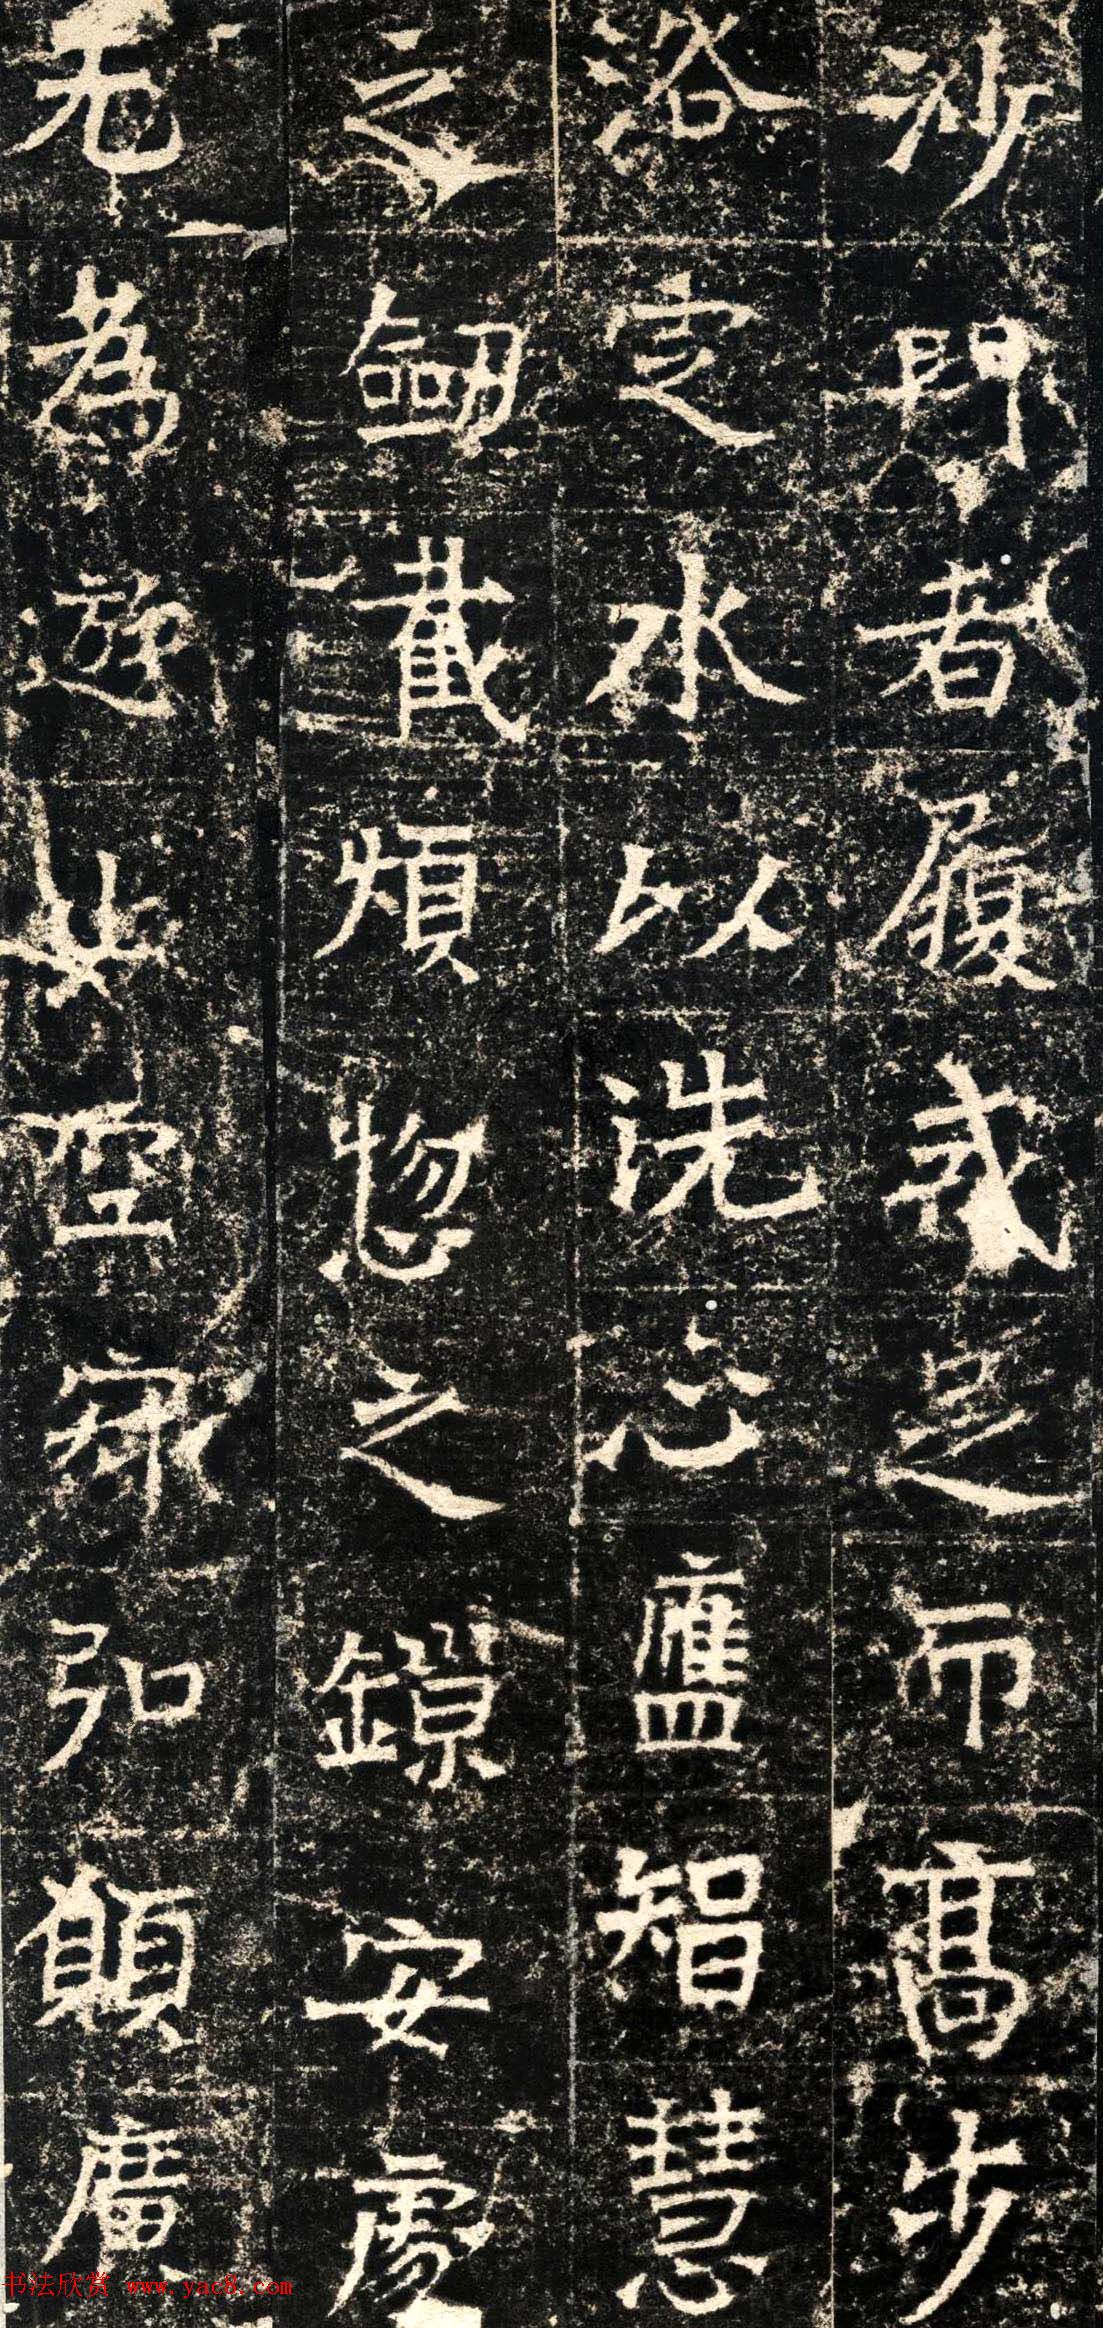 沙門者履戒足而高步
浴定水以洗心智慧
之劒截煩惚之鏁安處
无為遊止空寂弘願廣
书法欣赏 www.yac8.com